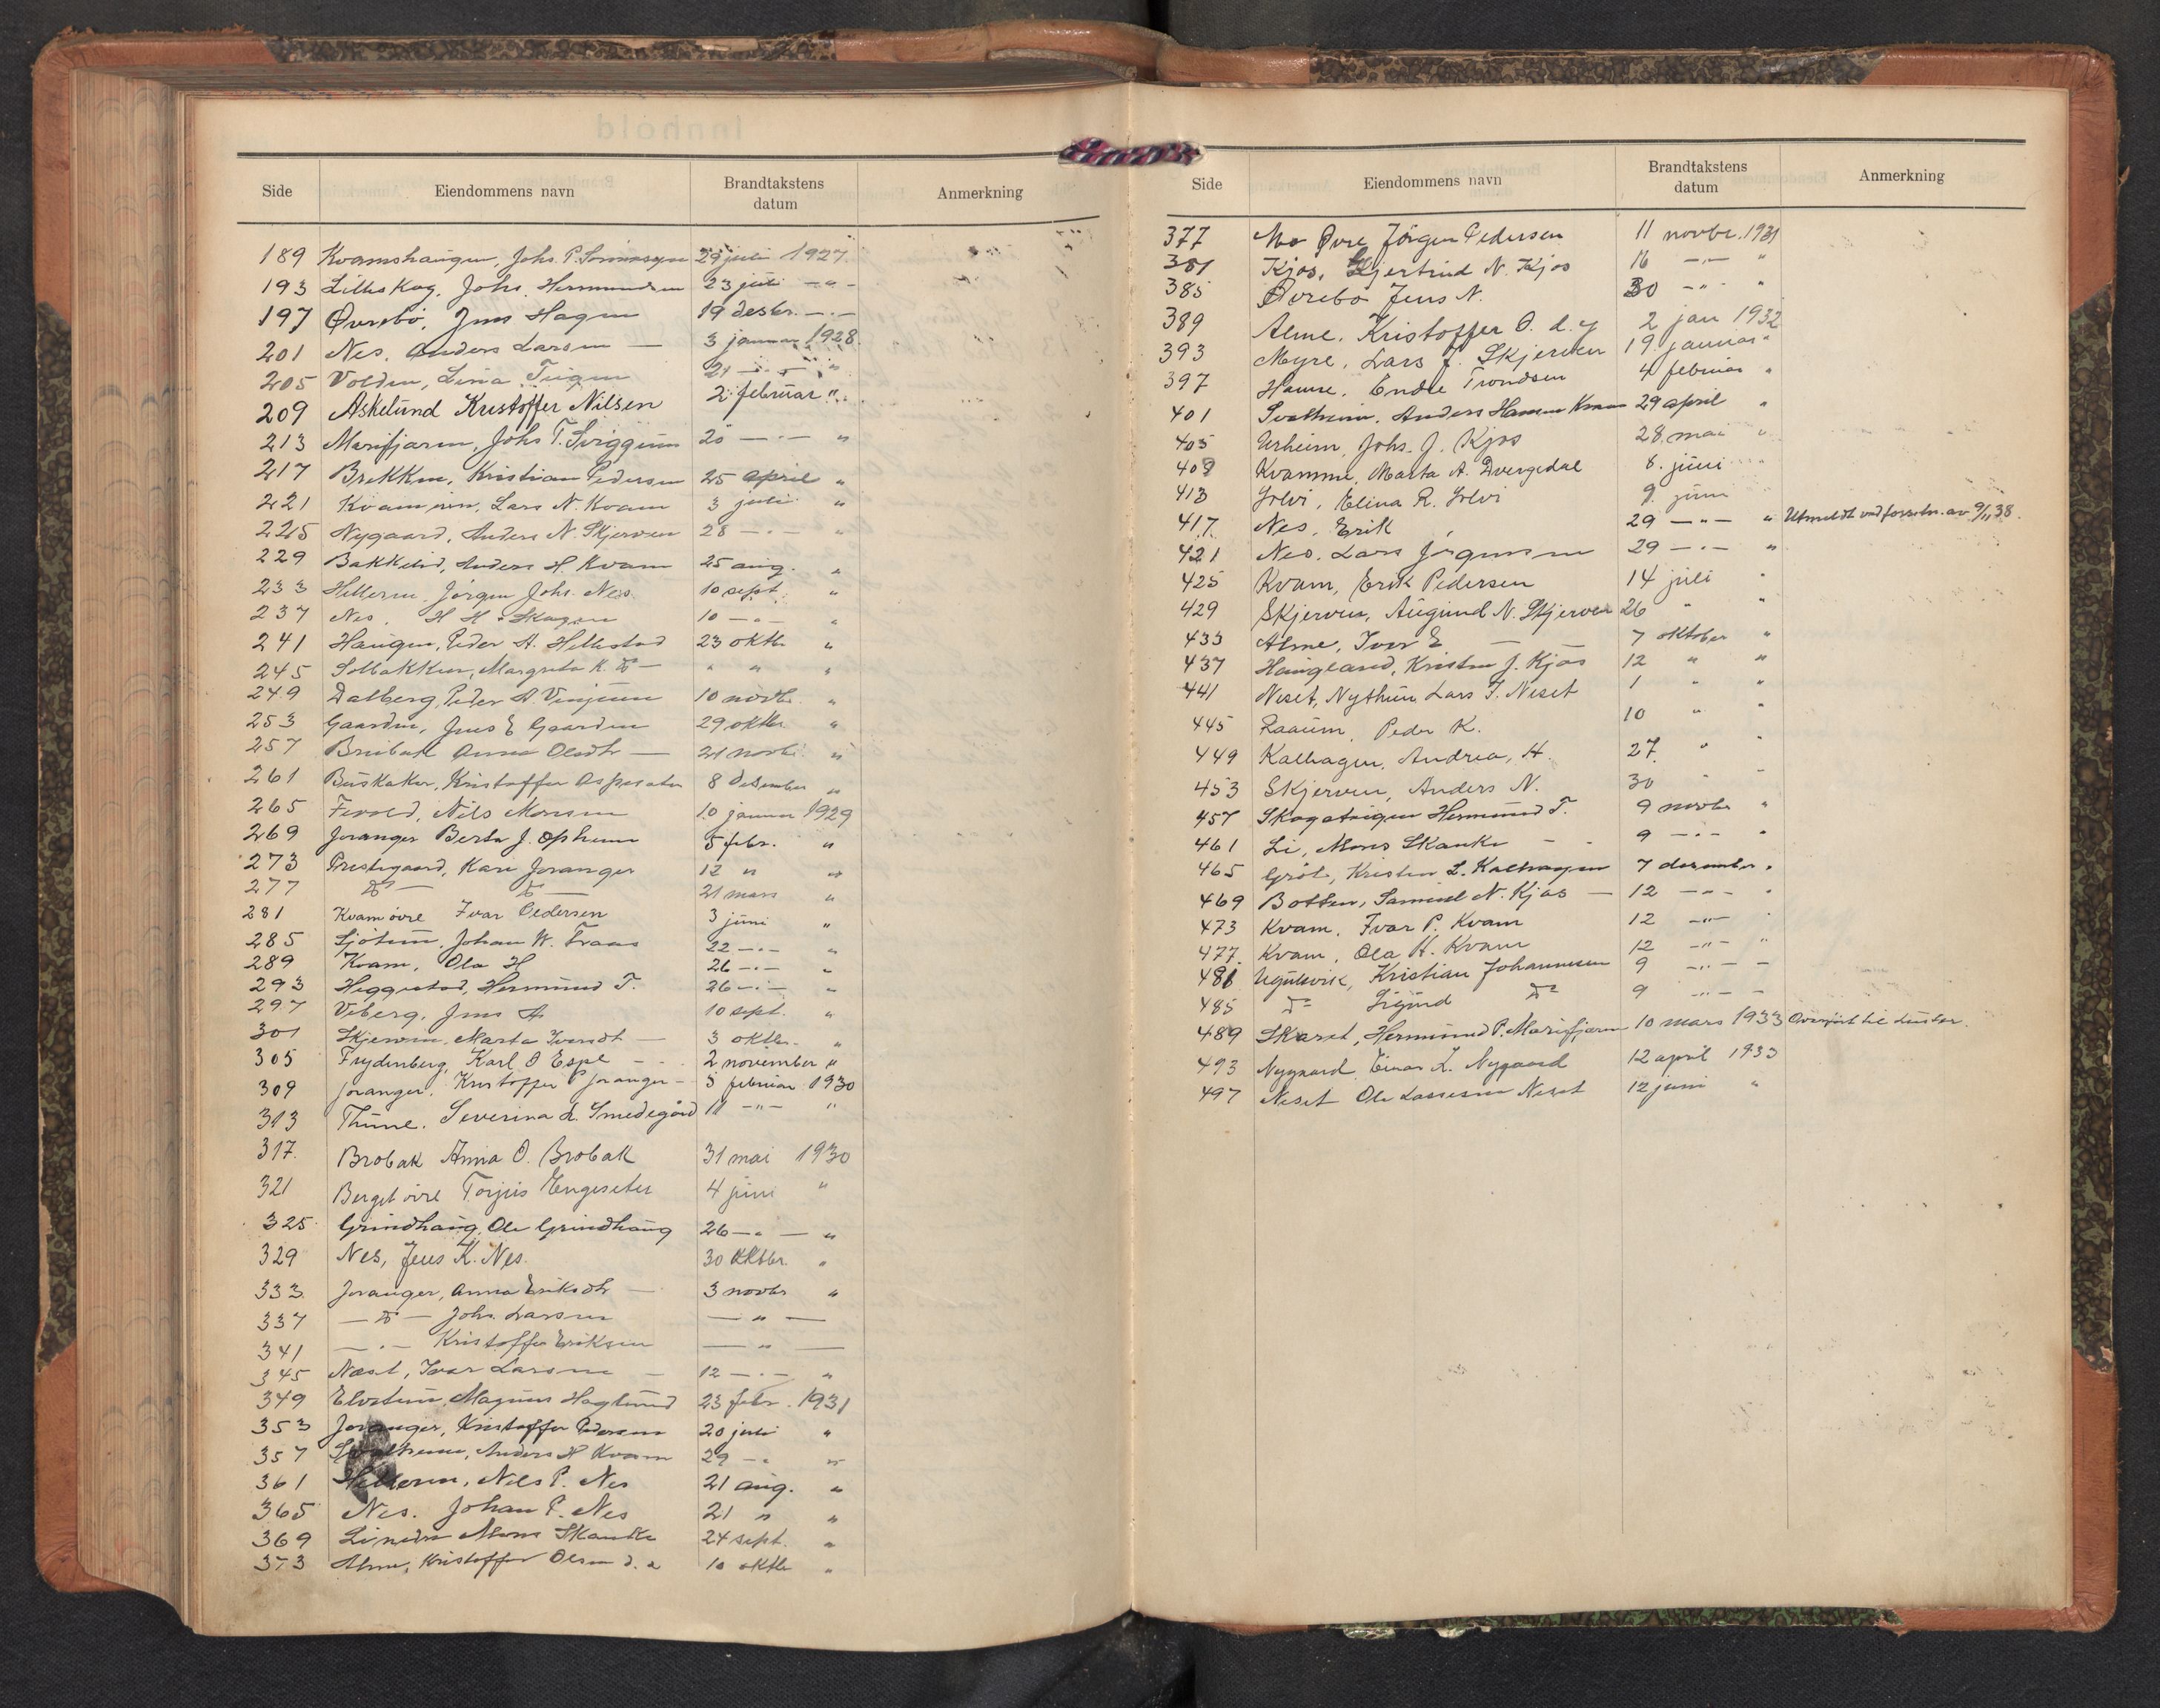 Side Eiendommens navn Brandtakstens datum Anmerkning
189 Kvamshaugen, Johs. P. 29 juli 1927
193 Lilleskog, Johs. Hermundsen 23 juli -"-
197 Øvrebö, Jens Hagen 19 desbr. -"-
201 Nes, Anders Larsen — 3 januar 1928
205 Volden, Lina Teigen 21 -"- "
209 Askelund Kristoffer Nilsen 2 februar "
213 Marifjæren, Johs T. Sviggum 20 -"- "
217 Brekken, Kristian Pedersen 25 april "
221 Lars N. Kvam 3 juli "
225 Nygaard, Anders N. Skjerven 28 -"- "
229 Bakkelid, Anders H. Kvam 25 aug. "
233 Helleren, Jörgen Johs. Nes 10 sept. "
237 Nes, H. H. Skagen 10 -"- "
241 Haugen, Peder A. Hellestad 23 oktbr "
245 Solbakken, Margreta K. Do — " " "
249 Dalberg, Peder A. Vinjum 10 novbr. "
253 Gaarden, Jens E Gaarden 29 oktbr. "
257 Brubak Anna Olsdtr — 21 novbr. "
261 Buskaker, Kristoffer 8 desember "
265 Fivold, Nils Monsen 10 januar 1929
269 Joranger Berta J. Opheim 5 febr. "
273 Prestegaard, Kari Joranger 12 " "
277 Do — Do — 21 mars "
281 Kvam övre Ivar Pedersen 3 juni "
285 Sjötun, Johan W. Fraas 22 -"- "
289 Kvam, Ola H 26 -"- "
293 Heggestad, Hermund T. 26 -"- "
297 Veberg, Jens A 10 sept. "
301 Skjerven, Marta Iversdt — 3 oktbr. "
305 Frydenberg, Karl O Espe - - 2 november "
309 Joranger, Kristoffer P Joranger - 5 februar 1930
313 Thune, Severina L. Smedegård 11 -"- "
317. Brobak Anna O. Brobak 31 mai 1930
321 Berget övre Torjus Engeseter 4 juni "
325 Grindhaug, Ole Grindhaug 26 -"- "
329 Nes, Jens K. Nes. 30 oktbr. "
333 Joranger, Anna Eriksdtr — 3 novbr "
337 — Do — Johs. Larsen — " —
341 — " — Kristoffer Eriksen — " —
345 Ivar Larsen — 12 -"- "
349 Elvetun, Magnus Haglund 23 febr. 1931
353 Joranger, Kristoffer Pedersen 20 juli "
357 Anders H Kvam 29 -"- "
361 Helleren, Nils P. Nes 21 aug. "
365 Nes. Johan P. Nes 21 " "
369 Li nedre Mons Skanke 24 sept. "
373 Alme, Kristoffer Olsen d. e 10 oktbr "
Side Eiendommens navn Brandtakstens datum Anmerkning
377 Mo Øvre Jörgen Pedersen 11 novbr. 1931
381 Kjos, Gjertrud N. Kjos 16 -"- "
385 Øvrebö Jens N. 30 -"- "
389 Alme, Kristoffer O. d. y 2 jan 1932
393 Myre, Lars J. Skjerven 19. januar "
397 Hamre, Endre Trondsen 4 februar "
401 Solheim, Anders Hansen Kvam 29 april "
405 Urheim, Johs. J. Kjos 28. mai "
409 Kvamme, Marta A. Dvergedal 8. juni "
413 Solvi, Elina R. Solvi 9. juni
417. Nes, Erik 29 -"- " Utmeldt ved forsetn. av 9/11 38.
421 Nes, Lars Jörgensen 29 -"- "
425 Kvam, Erik Pedersen 14 juli "
429 Skjerven, Augund N. Skjerven 26 " "
433 Alme, Iver E — — 7 oktober "
437 Haugland, Kristen J. Kjos 12 " "
441 Neset, Nythun Lars I. Neset 1 " "
445 Raaum, Peder K. 10 " "
449 Kalhagen, Andrea, H. 27. " "
453 Skjerven, Anders N. 30 " "
457 Hermund T. 9 novbr "
461 Li, Mons Skanke - - 9 -"- "
465 Gröt, Kristen L. Kalhagen 7 desember "
469 Botten, Samuel N. Kjos — 12 -"- "
473 Kvam, Ivar P. Kvam 12 -"- "
477. Kvam, Ola H. Kvam 12 -"- "
481 Ugulsvik, Kristian Johannesen 9 -"- -
485 Do Sigurd Do 9 -"- -
489 Skaret, Hermund P. Marifjæren 10 mars 1933 Overfört til Luster.
493 Nygaard, Einar L. Nygaard 12 april 1933
497 Neset Ole Lassesen Neset 12 juni "